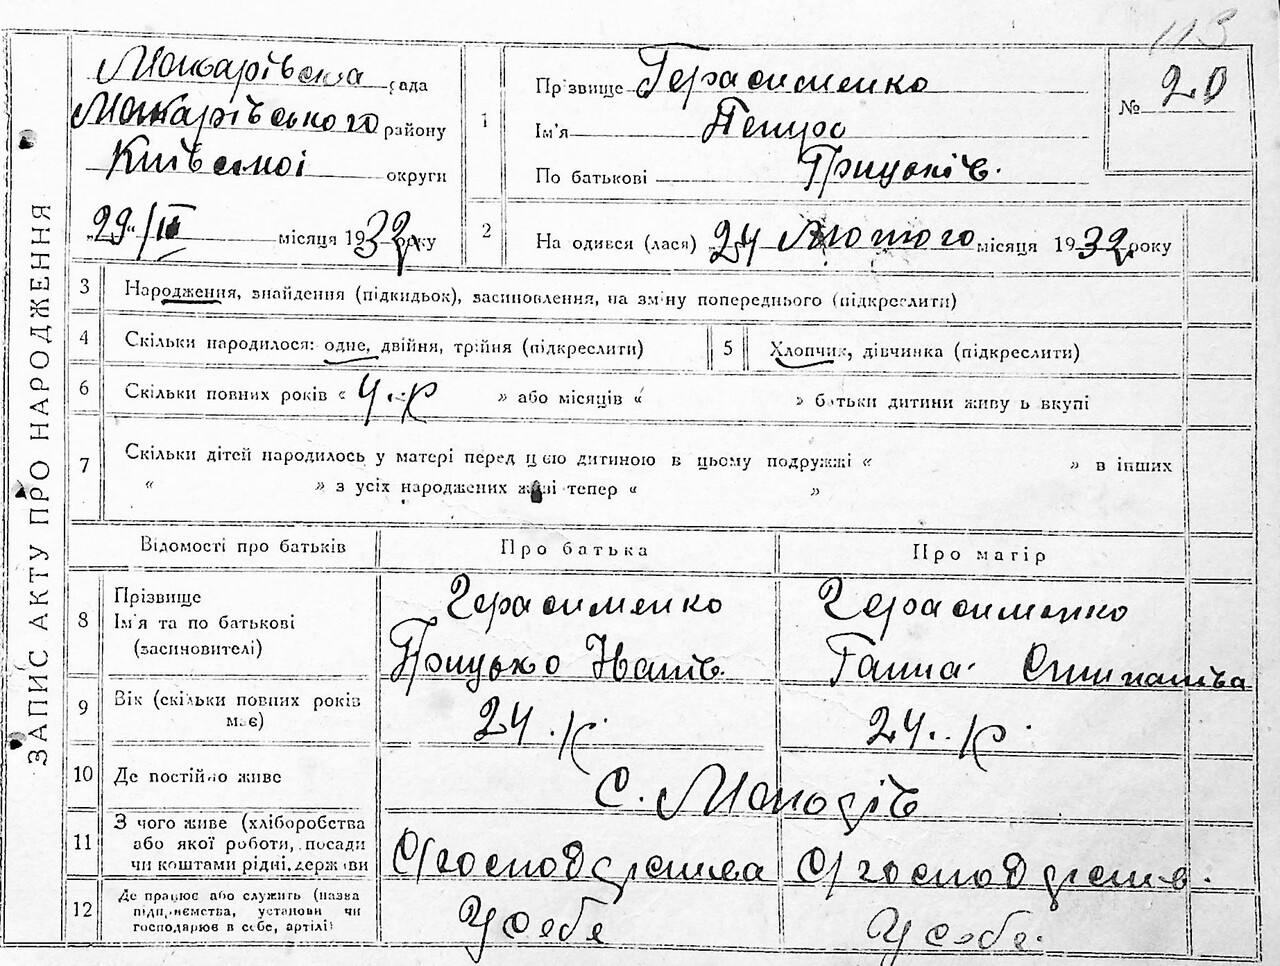 113
ЗАПИС АКТУ ПРО НАРОДЖЕННЯ
Макарівська рада
Макарівського району
Київської округи
„29“/III місяця 1932 року
1
Прізвище Герасименко
Ім'я Петро
По батькові Грицьків.
№ 20
2
На одився (лася) 24 Лютого місяця 1932 року
3 Народження, знайдення (підкидьок), засиновлення, на зміну попереднього (підкреслити)
4 Скільки народилося: одне, двійня, трійня (підкреслити)
5 Хлопчик, дівчинка (підкреслити)
6 Скільки повних років « 4.р » або місяців « » батьки дитини живу ь вкупі
7 Скільки дітей народилось у матері перед цією дитиною в цьому подружжі « » в інших
« » з усіх народжених живі тепер « »
Відомості про батьків
Про батька
Про матір
8 Прізвище
Ім'я та по батькові
(засиновителі)
Герасименко
Грицько Іванів.
Герасименко
Ганна
9 Вік (скільки повних років
має)
24.р.
24.р.
10 Де постійно живе
С.
11 З чого живе (хліборобства
або якої роботи, посади
чи коштами рідні, держави
С/господарства
С/господарств.
12 Де працює або служить (назва
підприємства, установи чи
господарює в себе, артілі)
У себе
У себе.